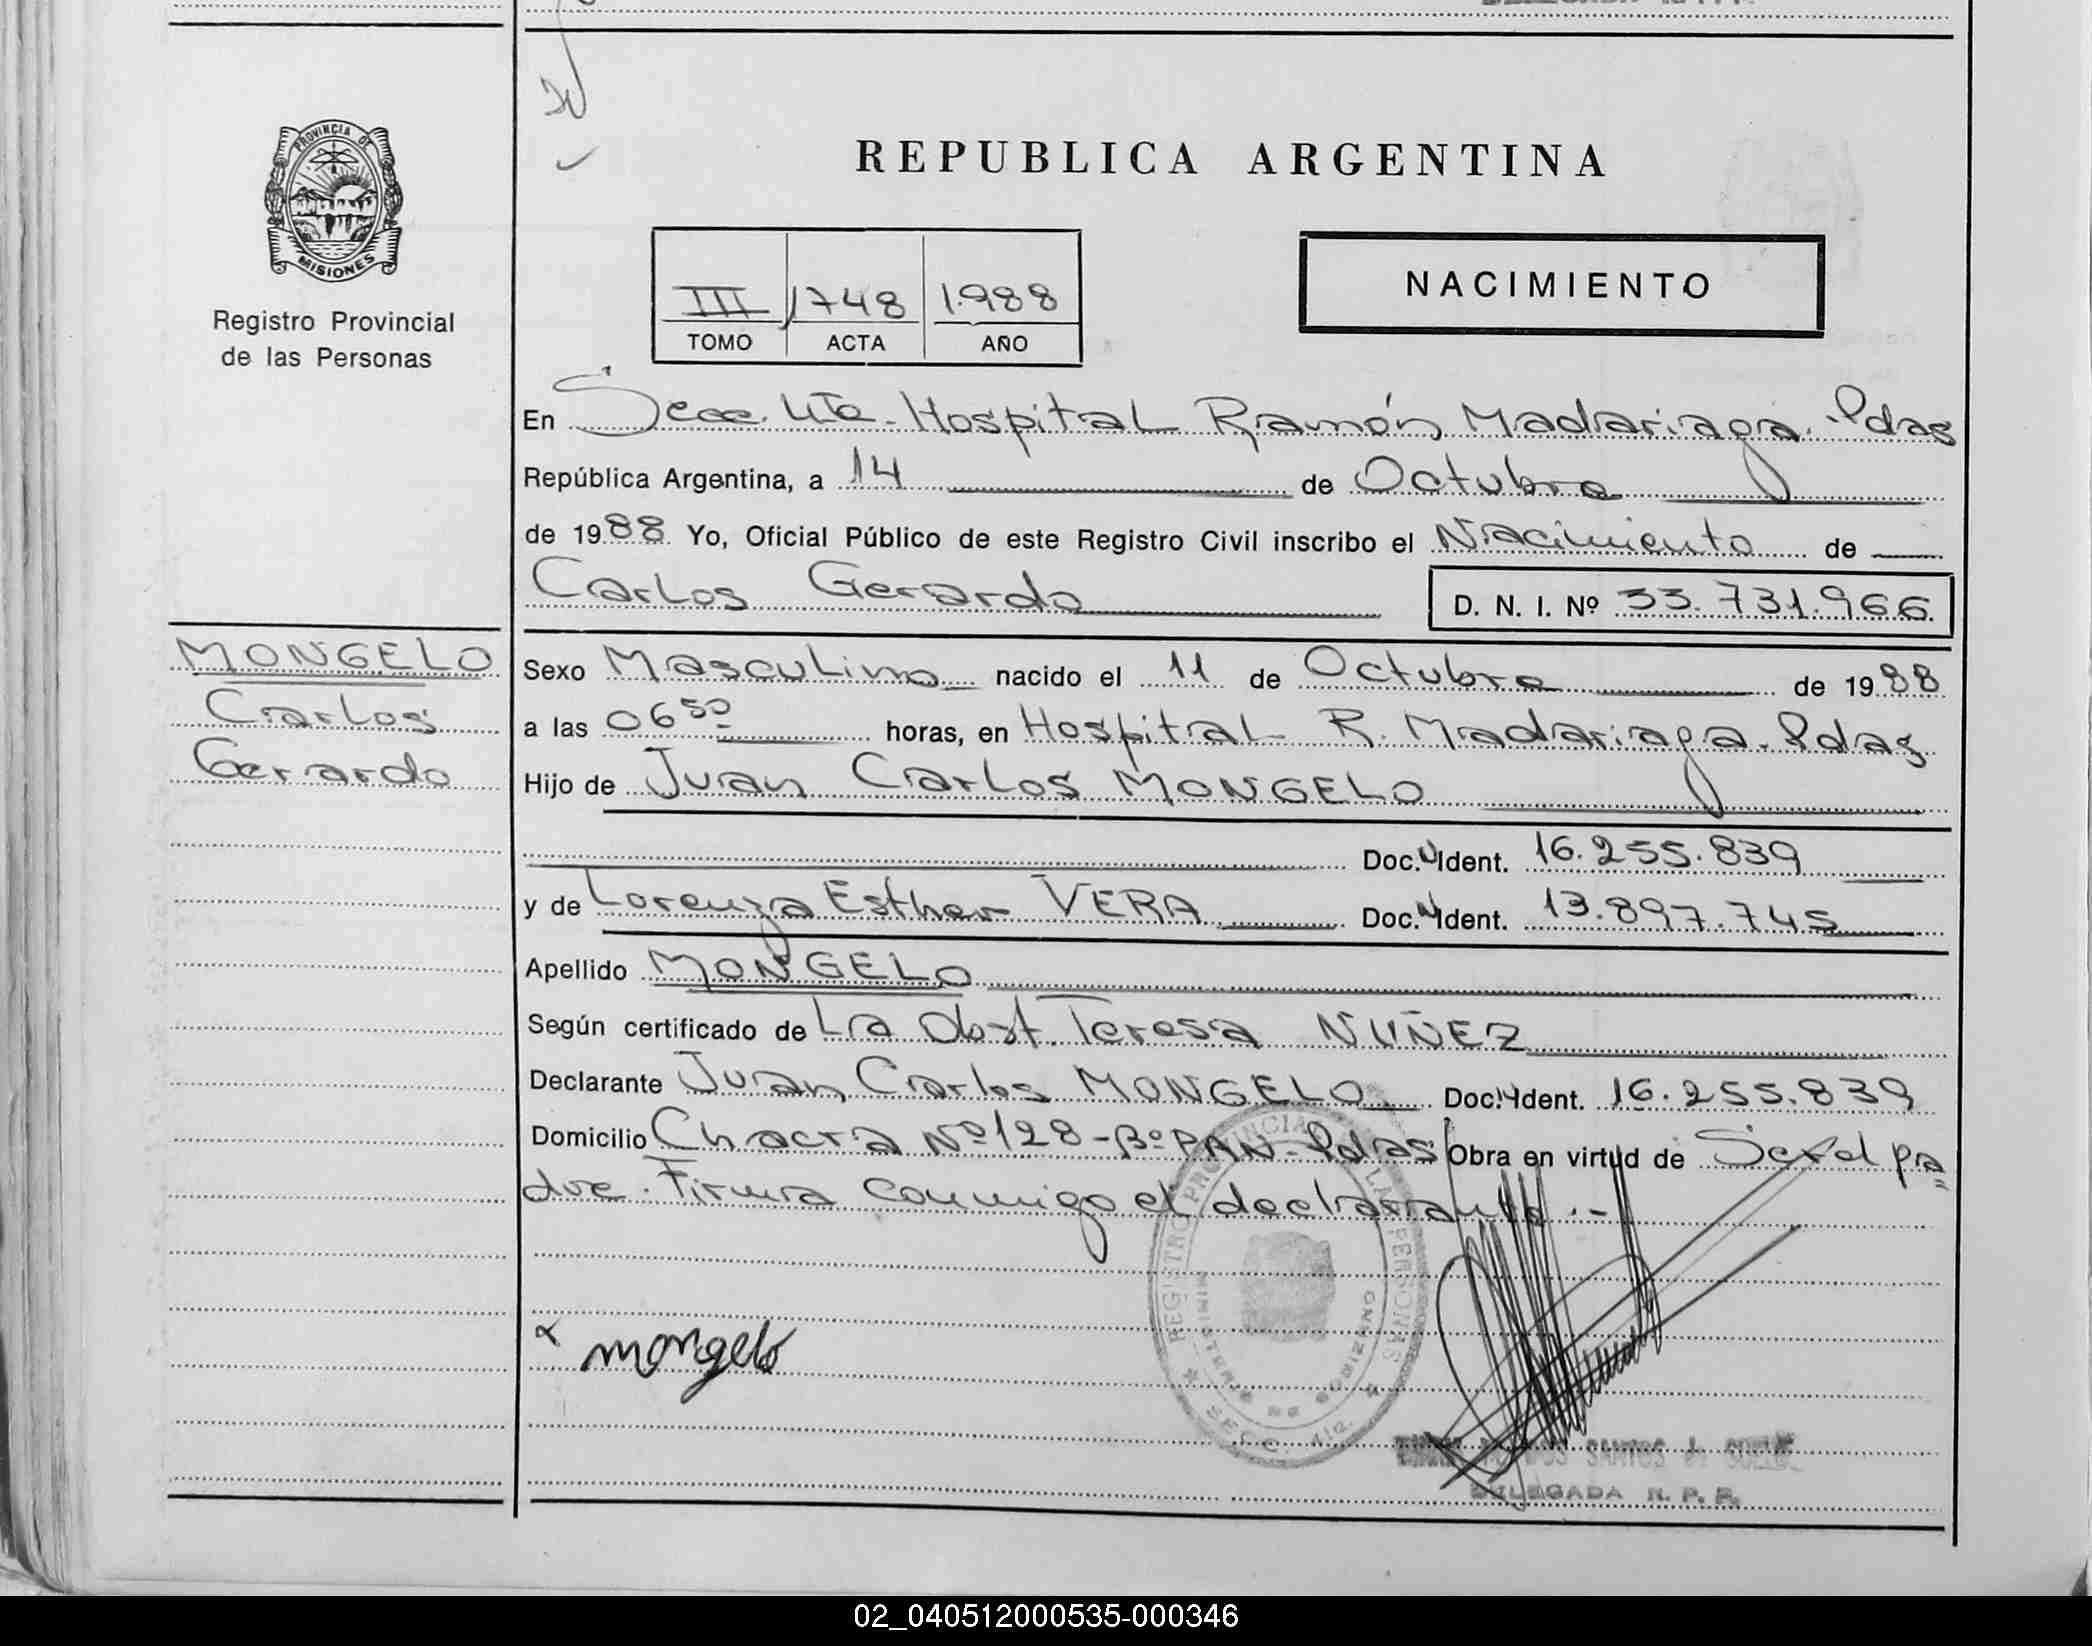 PROVINCIA DE
MISIONES
Registro Provincial
de las Personas
REPUBLICA ARGENTINA
III 1748 1.988
TOMO ACTA AÑO
NACIMIENTO
En Secc. 4ta. Hospital Ramón Madariaga. Pdas
República Argentina, a 14 de Octubre
de 1988 Yo, Oficial Público de este Registro Civil inscribo el Nacimiento de
Carlos Gerardo D. N. I. Nº 33.731.966
MONGELO
Carlos
Gerardo
Sexo Masculino nacido el 11 de Octubre de 1988
a las 06 50 horas, en Hospital R. Madariaga. Pdas
Hijo de Juan Carlos MONGELO
Doc. Ident. 16.255.839
y de Lorenza Esther VERA Doc. Ident. 13.897.745
Apellido MONGELO
Según certificado de La Obst. Teresa NUÑEZ
Declarante Juan Carlos MONGELO Doc. Ident. 16.255.839
Domicilio Chacra Nº 128 - Bº PAN - Pdas Obra en virtud de Ser el pa=
dre. Firma conmigo el declarante.-
REGISTRO PROVINCIAL LAS PERSONAS
MINISTERIO DE GOBIERNO
SECC. 4ta.
mongelo
DOS SANTOS
DELEGADA R. P. P.
02_040512000535-000346